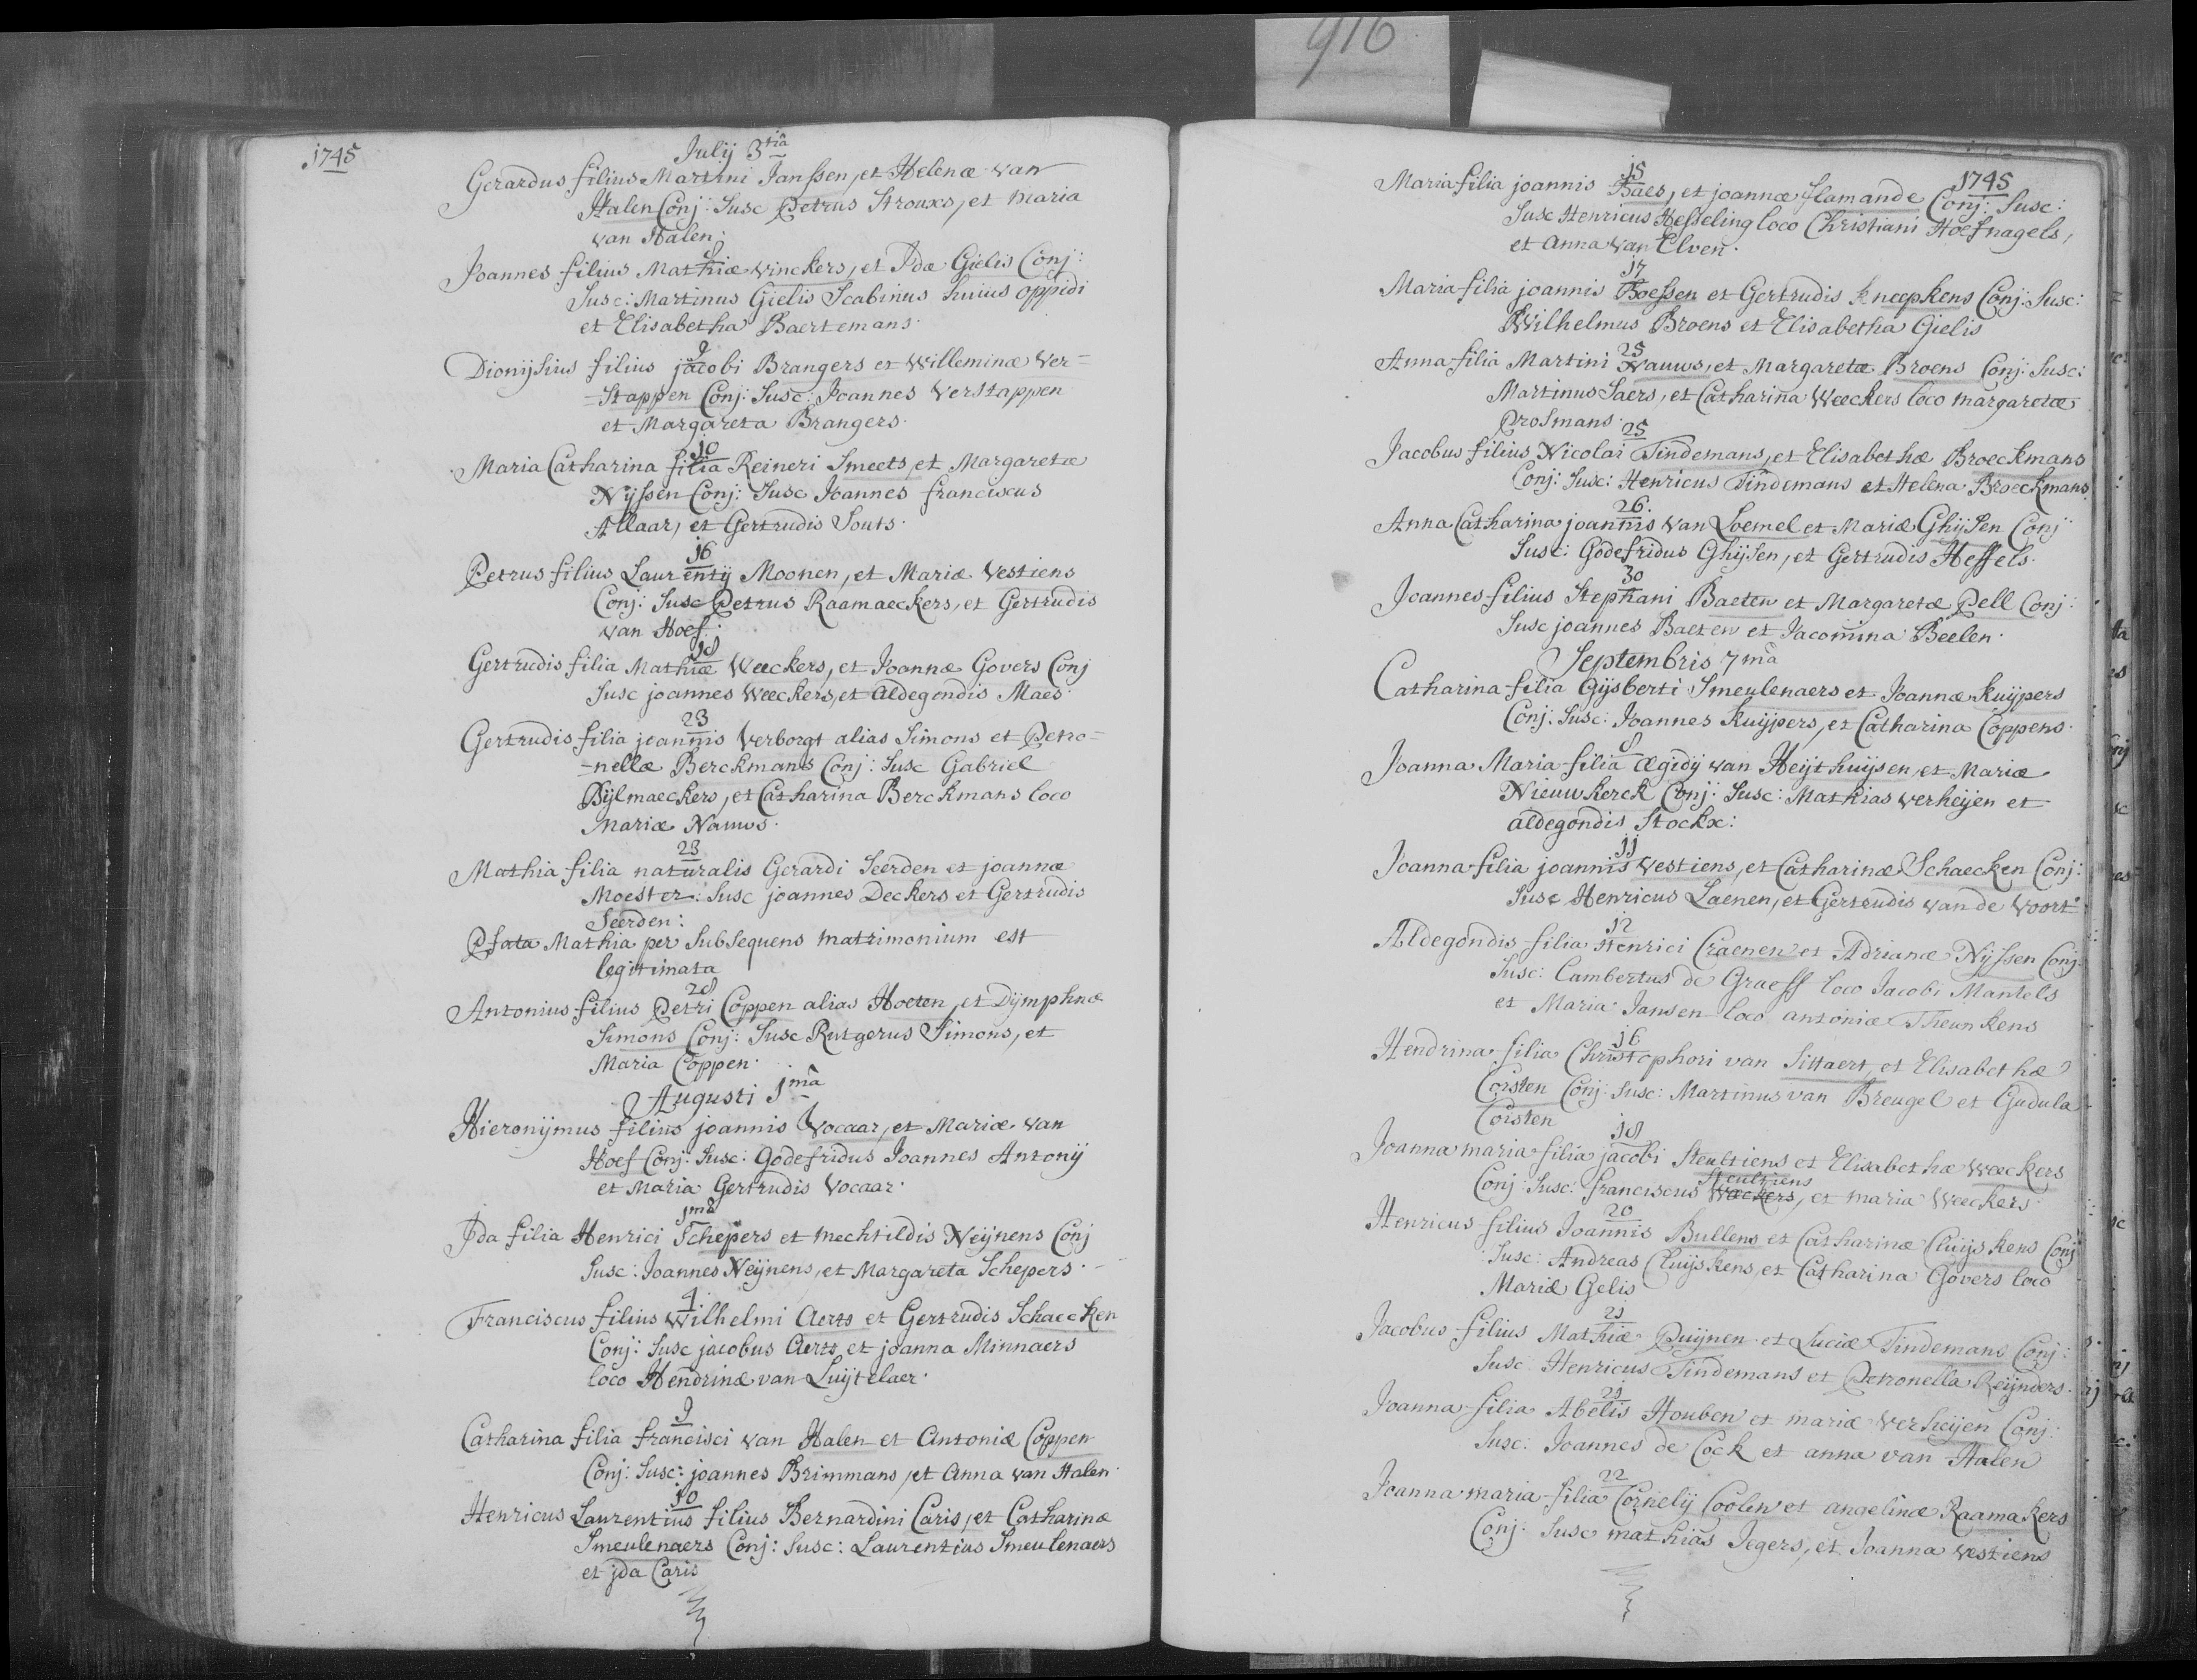 916
1745
July 3tiâ
Gerardus filius Martini Janssen, et Helenæ van
Halen Conj: Susc Petrus Strouxs, et Maria
van Halen.
8
Joannes filius Mathiæ winckers, et Idæ Gielis Conj:
Susc: Martinus Gielis Scabinus huius oppidi
et Elisabetha Baertemans.
9
Dionijsius filius jacobi Brangers et Willeminæ Ver=
=Stappen Conj: Susc: Joannes Verstappen
et Margareta Brangers.
10
Maria Catharina filia Reineri Smeets, et Margaretæ
Nijssen Conj: Susc Joannes franciscus
Allaar, et Gertrudis Souts.
16
Petrus filius Laurentij Moonen, et Mariæ Vestiens
Conj: Susc Petrus Raamaeckers, et Gertrudis
van Hoef.
18
Gertrudis filia Mathiæ Weeckers, et Joannæ Govers Conj
Susc joannes Weeckers, et Aldegondis Maes.
23
Gertrudis filia joannis Verborgt alias Simons et Petro=
=nellæ Berckmans Conj: Susc Gabriel
Pijlmaeckers, et Catharina Berckmans loco
Mariæ Nauws.
23
Mathia filia naturalis Gerardi Seerden et joannæ
Moester: Susc joannes Deckers et Gertrudis
Seerden:
Pfata Mathia per Subsequens matrimonium est
legitimata
28
Antonius filius Petri Coppen alias Hoeten, et Dijmphnæ
Simons Conj: Susc Rutgerus Simons, et
Maria Coppen.
Augusti 1mâ
Hieronijmus filius joannis Vocaar, et Mariæ van
Hoef Conj: Susc: Godefridus Joannes Antonij
et Maria Gertrudis Vocaar.
1mâ
Ida filia Henrici Schepers et Mechtildis Neijnens Conj
Susc: Joannes Neijnens, et Margareta Schepers.
4.
Franciscus filius Wilhelmi Aerts et Gertrudis Schaecken
Conj: Susc jacobus Aerts et joanna Minnaers
loco Hendrinæ van Luijtelaer.
9
Catharina filia francisci van Halen et Antoniæ Coppen
Conj: Susc: joannes Brimmans, et Anna van Halen.
10
Henricus Laurentius filius Bernardini Caris, et Catharinæ
Smeulenaers Conj: Susc: Laurentius Smeulenaers
et jda Caris
1745
15
Maria filia joannis Baes, et joannæ flamande Conj: Susc:
Susc Henricus Hesseling loco Christiani Hoefnagels,
et Anna van Elven.
17
Maria filia joannis Boessen et Gertrudis Kneepkens Conj: Susc:
Wilhelmus Broens et Elisabetha Gielis
25
Anna filia Martini Nauws, et Margaretæ Broens Conj: Susc:
Martinus Saers, et Catharina Weeckers loco margaretæ
Prosmans.
25
Jacobus filius Nicolai Tindemans, et Elisabethæ Broeckmans
Conj: Susc: Henricus Tindemans et Helena Broeckmans
26.
Anna Catharina joannis van Loemel et Mariæ Ghijsen Conj
Susc: Godefridus Ghijsen, et Gertrudis Heffels.
30
Joannes filius Stephani Baeten et Margaretæ Pell Conj:
Susc joannes Baeten et Jacomina Beelen.
Septembris 7mâ
Catharina filia Gijsberti Smeulenaers et Joannæ Kuijpers
Conj: Susc: Joannes Kuijpers, et Catharina Coppens.
8
Joanna Maria filia Ægidij van Heijthuijsen, et Mariæ
Nieuwkerck Conj: Susc: Mathias verheijen et
aldegondis Stockx:
11
Joanna filia joannis Vestiens, et Catharinæ Schaecken Conj:
Susc Henricus Laenen, et Gertrudis van de Voort.
12
Aldegondis filia Henrici Craenen et Adrianæ Nijssen Conj:
Susc: Lambertus de Graeff loco Jacobi Mantels
et Maria Jansen loco antoniæ Theunkens
16
Hendrina filia Christophori van Sittaert, et Elisabethæ
Corsten Conj: Susc: Martinus van Breugel et Gudula
Corsten
18
Joanna maria filia jacobi Steultiens et Elisabethæ Weeckers
Steultiens
Conj: Susc: franciscus Weeckers, et maria Weeckers.
20
Henricus filius Joannis Bullens et Catharinæ Cluijskens Conj
Susc: Andreas Cluijskens, et Catharina Govers loco
Mariæ Gelis
21
Jacobus filius Mathiæ Puijnen et Luciæ Tindemans Conj:
Susc Henricus Tindemans et Petronella Reijnders.
21
Joanna filia Abelis Houben et mariæ Verheijen Conj:
Susc: Joannes de Cock et anna van Halen
22
Joanna maria filia Cornelij Coolen et angelinæ Raamakers
Conj: Susc mathias Jegers, et Joanna Vestiens